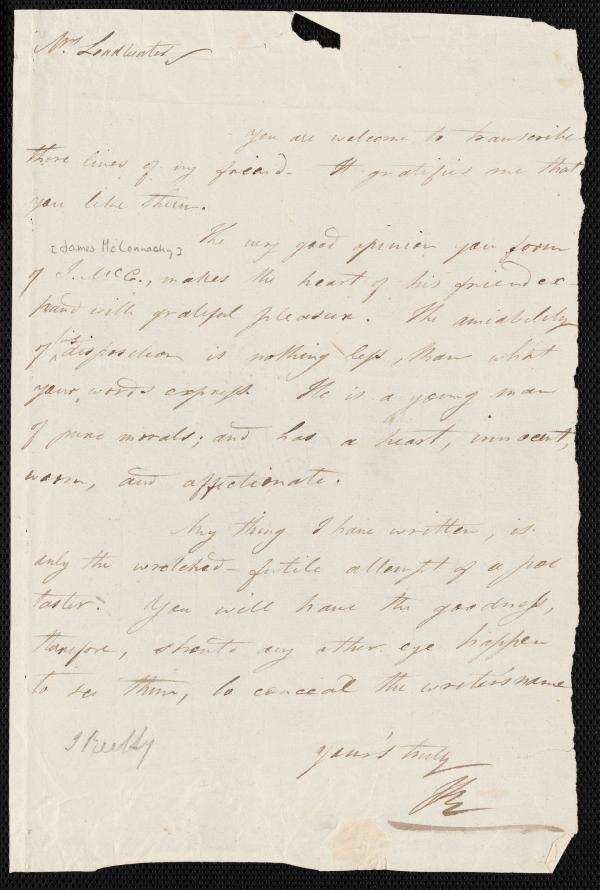 Mrs. Leadbeater
You are welcome to transcribe
these lines of my friend- It gratifies me that
you like them.
[James McConnachy] The very good opinion you form
of J. McC., makes the heart of his friend ex-
pand with grateful pleasure. The amiability
of his disposition is nothing less, than what
your words express. He is a young man
of pure morals; and has a heart, innocent,
warm, and affectionate.
Any thing I have written, is
only the wretched- futile attempt of a poe
taster. You will have the goodness,
therefore, should any other eye happen
to see them, to conceal the writer's name
your's truly